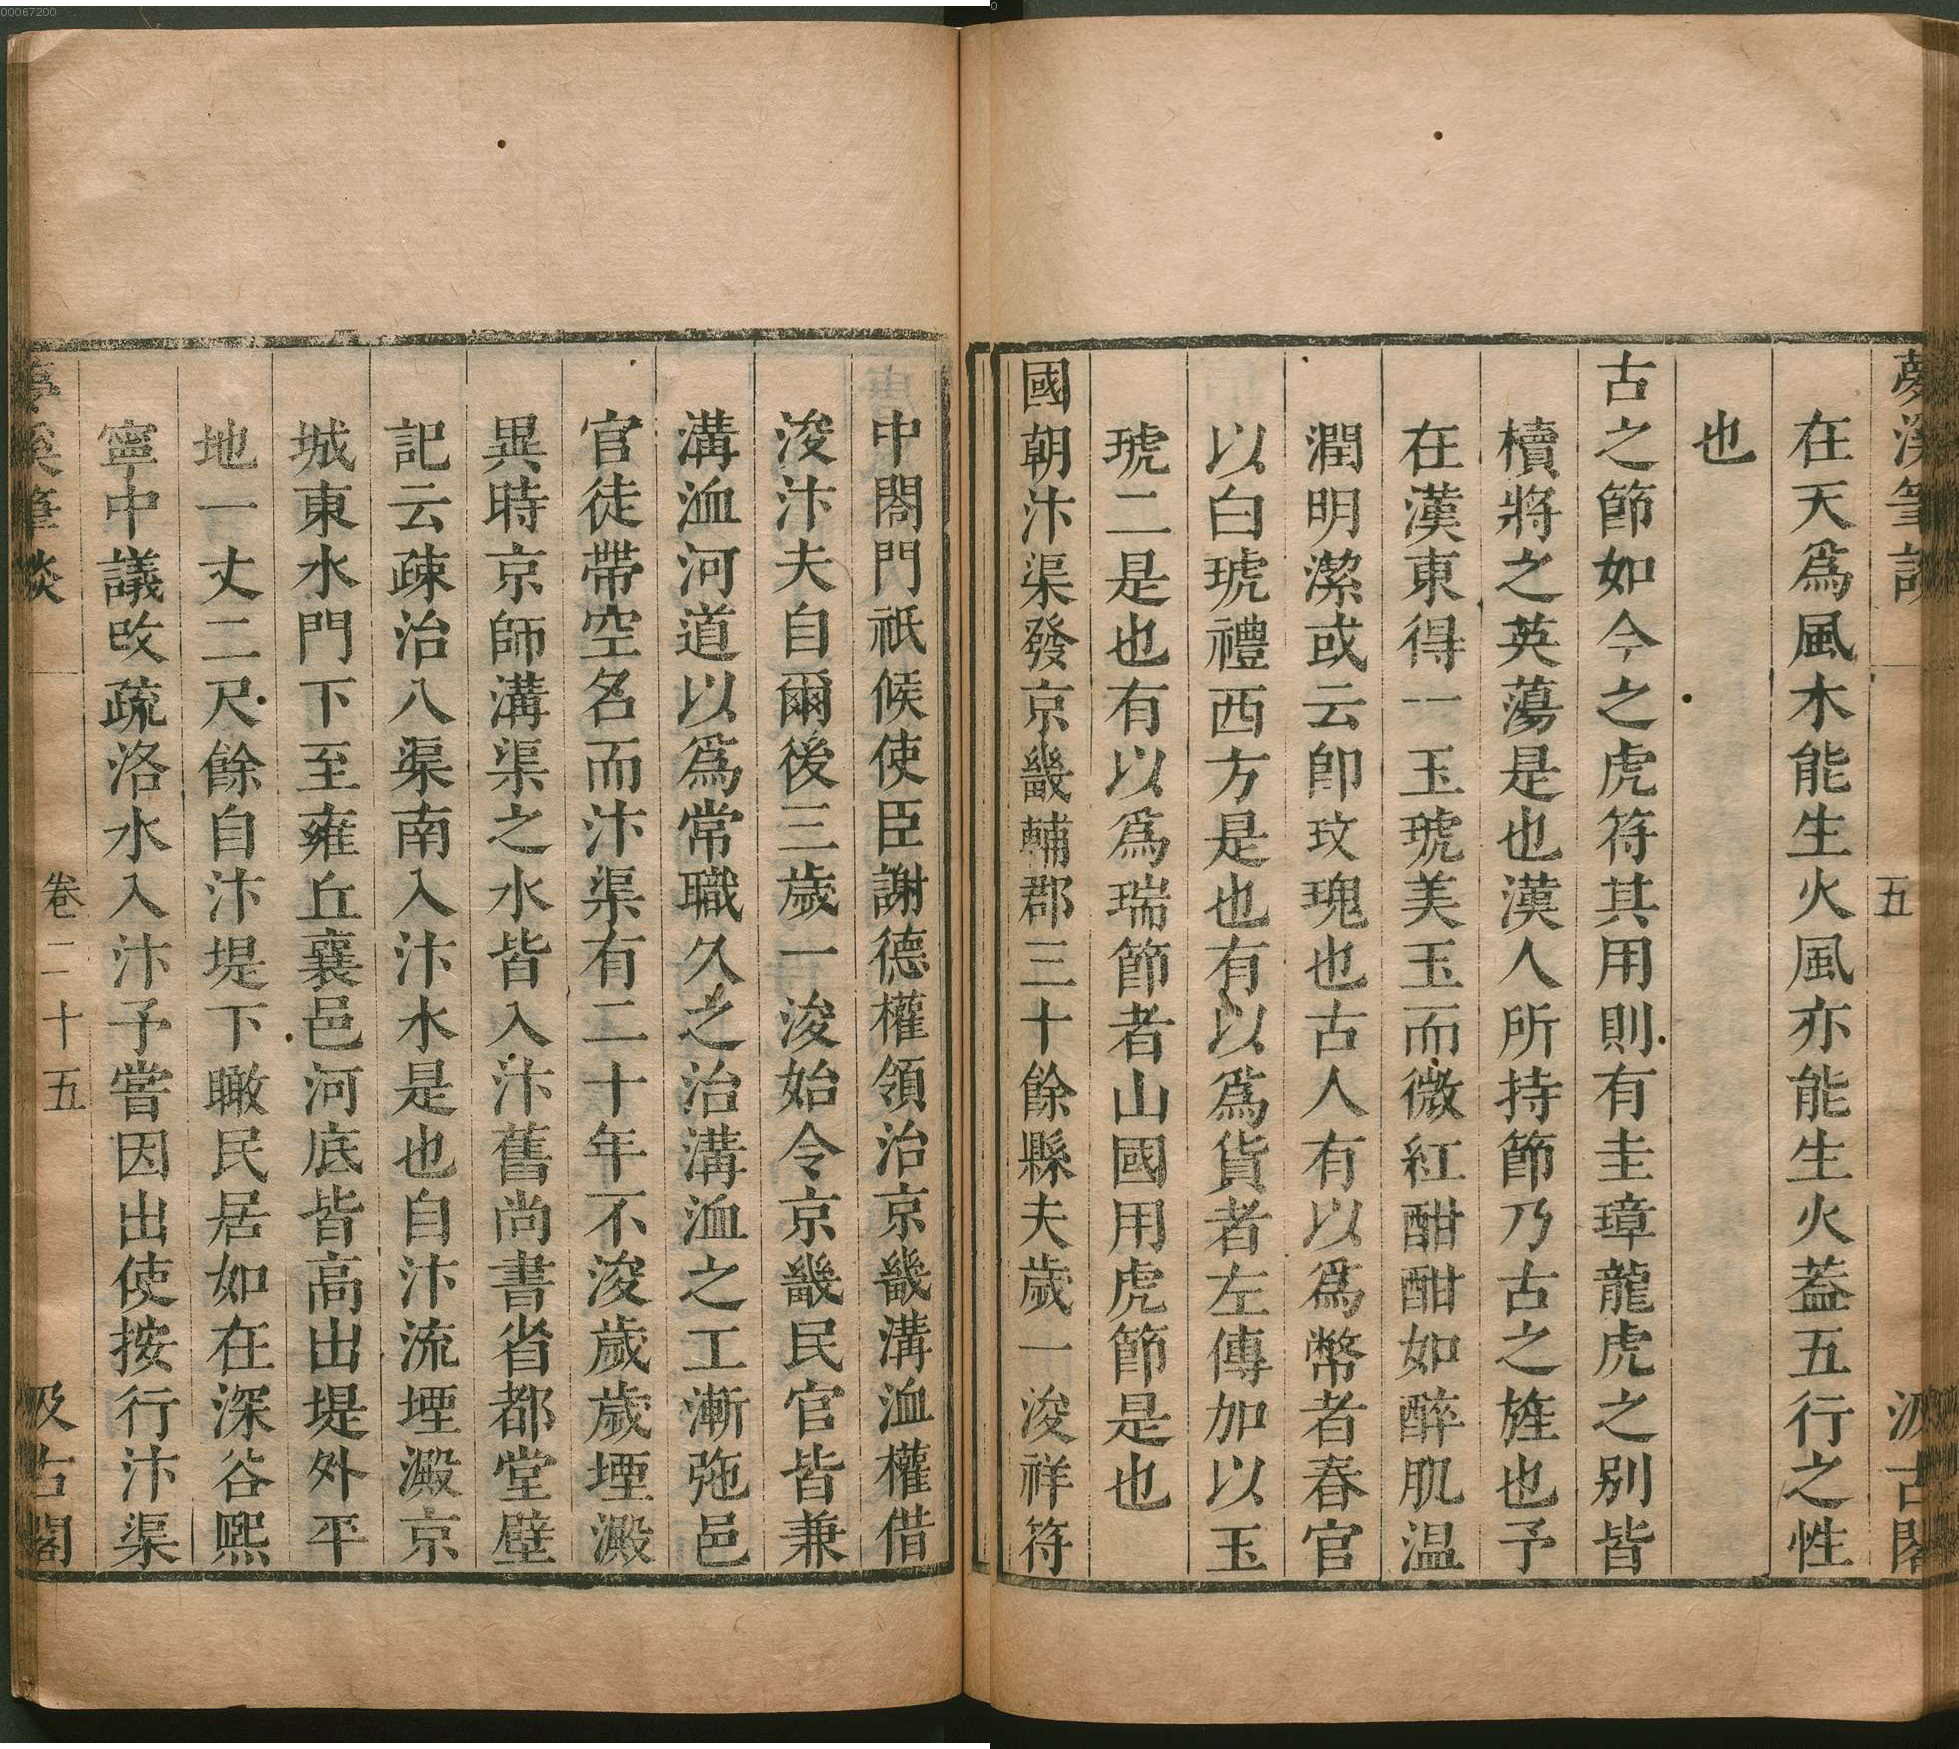 夢溪筆談 五 汲古閣
在天爲風木能生火風亦能生火蓋五行之性
也
古之節如今之虎符其用則有圭璋龍虎之别皆
櫝將之英蕩是也漢人所持節乃古之旌也予
在漢東得一玉琥美玉而微紅酣酣如醉肌温
潤明潔或云卽玫瑰也古人有以爲幣者春官
以白琥禮西方是也有以爲貨者左傳加以玉
琥二是也有以爲瑞節者山國用虎節是也
國朝汴渠發京畿輔郡三十餘縣夫歲一浚祥符
中閤門祇候使臣謝德權領治京畿溝洫權借
浚汴夫自爾後三歲一浚始令京畿民官皆兼
溝洫河道以爲常職久之治溝洫之工漸弛邑
官徒帶空名而汴渠有二十年不浚歲歲堙澱
異時京師溝渠之水皆入汴舊尚書省都堂壁
記云疎治八渠南入汴水是也自汴流堙澱京
城東水門下至雍丘襄邑河底皆高出堤外平
地一丈二尺餘自汴堤下瞰民居如在深谷熙
寧中議改疏洛水入汴予嘗因出使按行汴渠
夢溪筆談 卷二十五 汲古閣
00067200